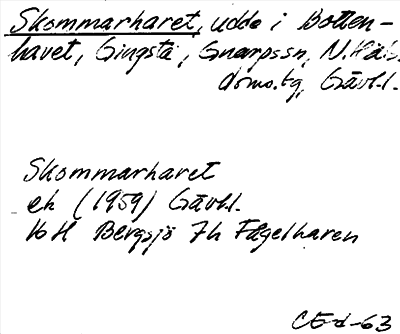 Skommarharet, udde i Botten-
havet, Gingsta, Gnarpssn, N.Häls.
doms.tg, Gävl.l.
Skommarharet
ek (1959) Gävl.l.
16 H Bergsjö 7h Fågelharen
CEd-63